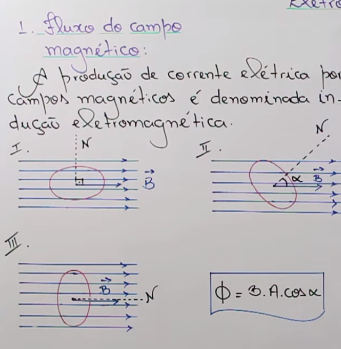 1. Fluxo do campo
magnético:
A produção de corrente elétrica por
campos magnéticos é denominada in-
dução eletromagnética.
I.
N
B
II.
N
α
B
III.
B
N
Φ = B.A.cosα